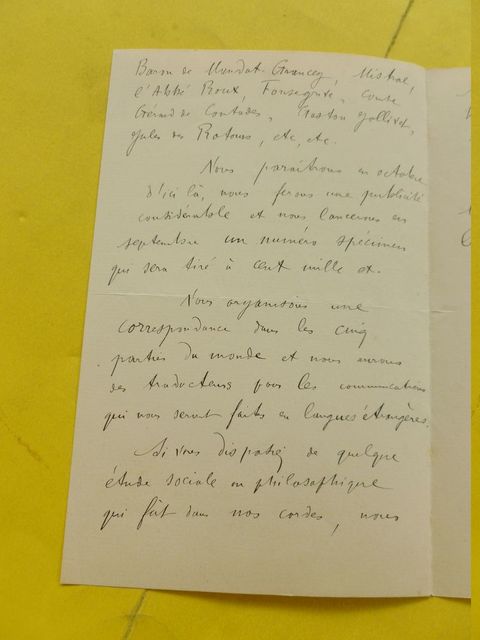 Baron de Mandat-Grancey, Mistral,
l'Abbé Roux, Fonsegrive, comte
Gérard de Contades, Gaston Jollivet,
Jules des Rotours, etc, etc.
Nous paraîtrons en octobre
d'ici là, nous ferons une publicité
considérable et nous lancerons en
septembre un numéro spécimen
qui sera tiré à cent mille ex.
Nous organisons une
correspondance dans les cinq
parties du monde et nous aurons
des traducteurs pour les communications
qui nous seront faites en langues étrangères.
Si vous disposiez de quelque
étude sociale ou philosophique
qui fût dans nos cordes, nous